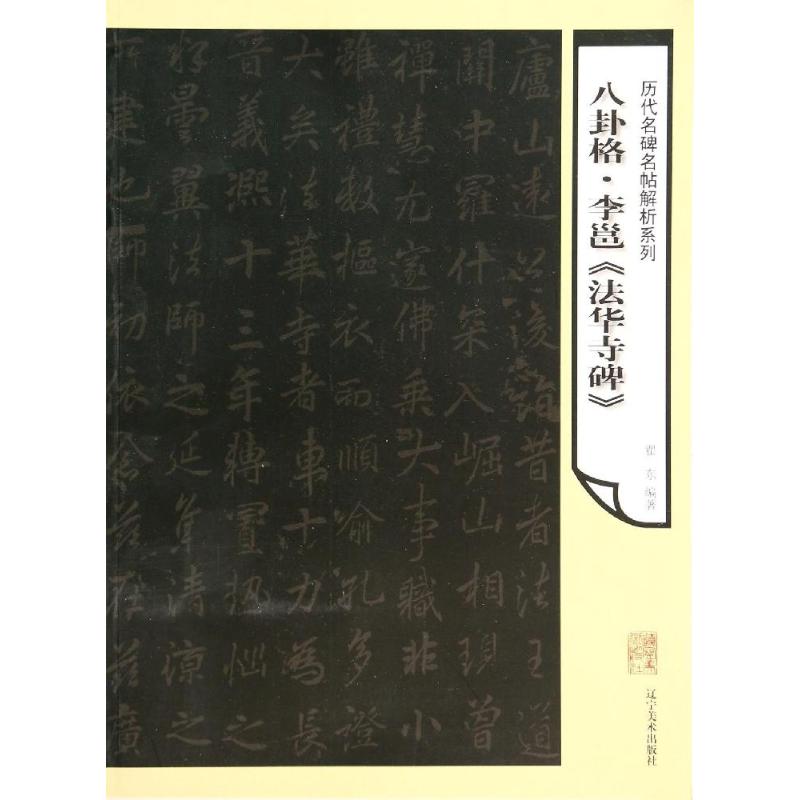 历代名碑名帖解析系列
八卦格·李邕《法华寺碑》
翟东 编著
辽宁美术出版社
廬山遠
後
昔者法王道
關中羅什
入崛山相項曾
禪慧尤邃佛乘大事職非小
雖禮數樞衣而順喻孔多證
大矣法華寺者車十力為長
晉義熙十三年轉
之
釋曇翼法師之延
清涼之
建也師初依
廣